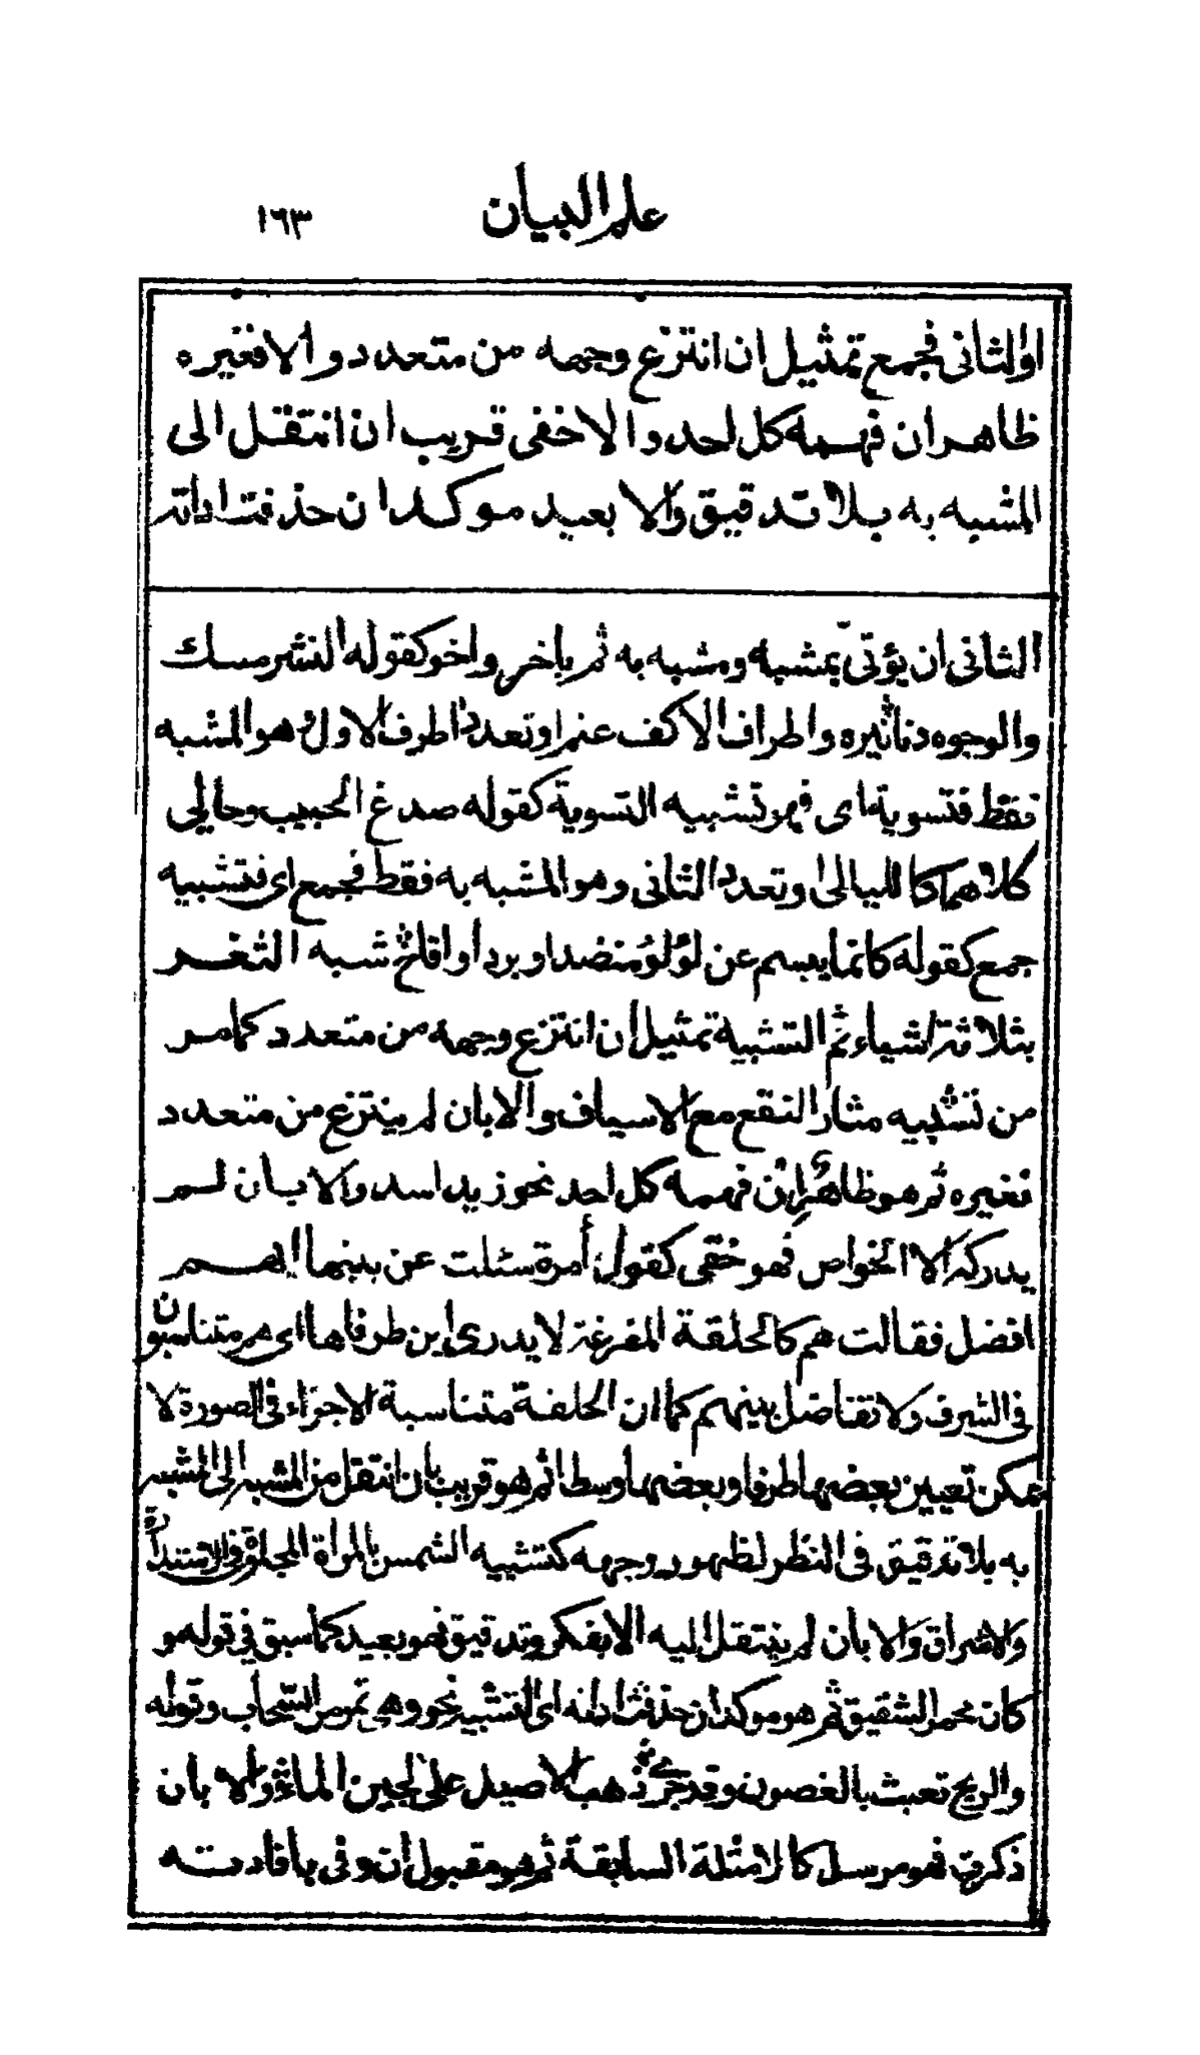 علم البيان ١٦٣
اوالثانى فجمع تمثيل ان انتزع وجهه من متعدد والا فغيره
ظاهر ان فهمه كل احد والا خفى قريب ان انتقل الى
المشبه به بلا تدقيق والا بعيد موكد ان حذفت اداته
الثانى ان يؤتى بمشبه ومشبه به ثم بآخر وآخر كقوله النشر مسك
والوجوه دنانير واطراف الاكف عنم او تعدد طرفه الاول وهو المشبه
فقط فتسوية اى فهو تشبيه التسوية كقوله صدغ الحبيب وحالى
كلاهما كالليالى او تعدد الثانى وهو المشبه به فقط فجمع اى فتشبيه
جمع كقوله كانما يبسم عن لؤلؤ منضد او برد او اقاح شبه الثغر
بثلاثة اشياء ثم التشبيه تمثيل ان انتزع وجهه من متعدد كما مر
من تشبيه مثار النقع مع الاسياف والا بان لم ينتزع من متعدد
فغيره ثم هو ظاهر ان فهمه كل احد نحو زيد اسد والا بان لم
يدركه الا الخواص فهو خفى كقول امرة سئلت عن بنيها ايهم
افضل فقالت هم كالحلقة المفرغة لا يدرى اين طرفاها اى هم متناسبون
فى الشرف ولا تفاضل بينهم كما ان الحلقة متناسبة الاجزاء فى الصورة لا
يمكن تعيين بعضها طرفا وبعضها وسطا ثم هو قريب بان انتقل من المشبه الى المشبه
به بلا تدقيق فى النظر لظهور وجهه كتشبيه الشمس بالمرأة المجلوة فى الاستدارة
والاشراق والا بان لم ينتقل اليه الا بفكر وتدقيق فهو بعيد كما سبق فى قوله و
كان محمر الشقيق ثم هو موكد ان حذفت اداته اى التشبيه نحو وهى تمر مر السحاب وقوله
والريح تعبث بالغصون وقد جرى ذهب الاصيل على لجين الماء والا بان
ذكرت فهو مرسل كالامثلة السابقة ثم هو مقبول ان وفى بافادته